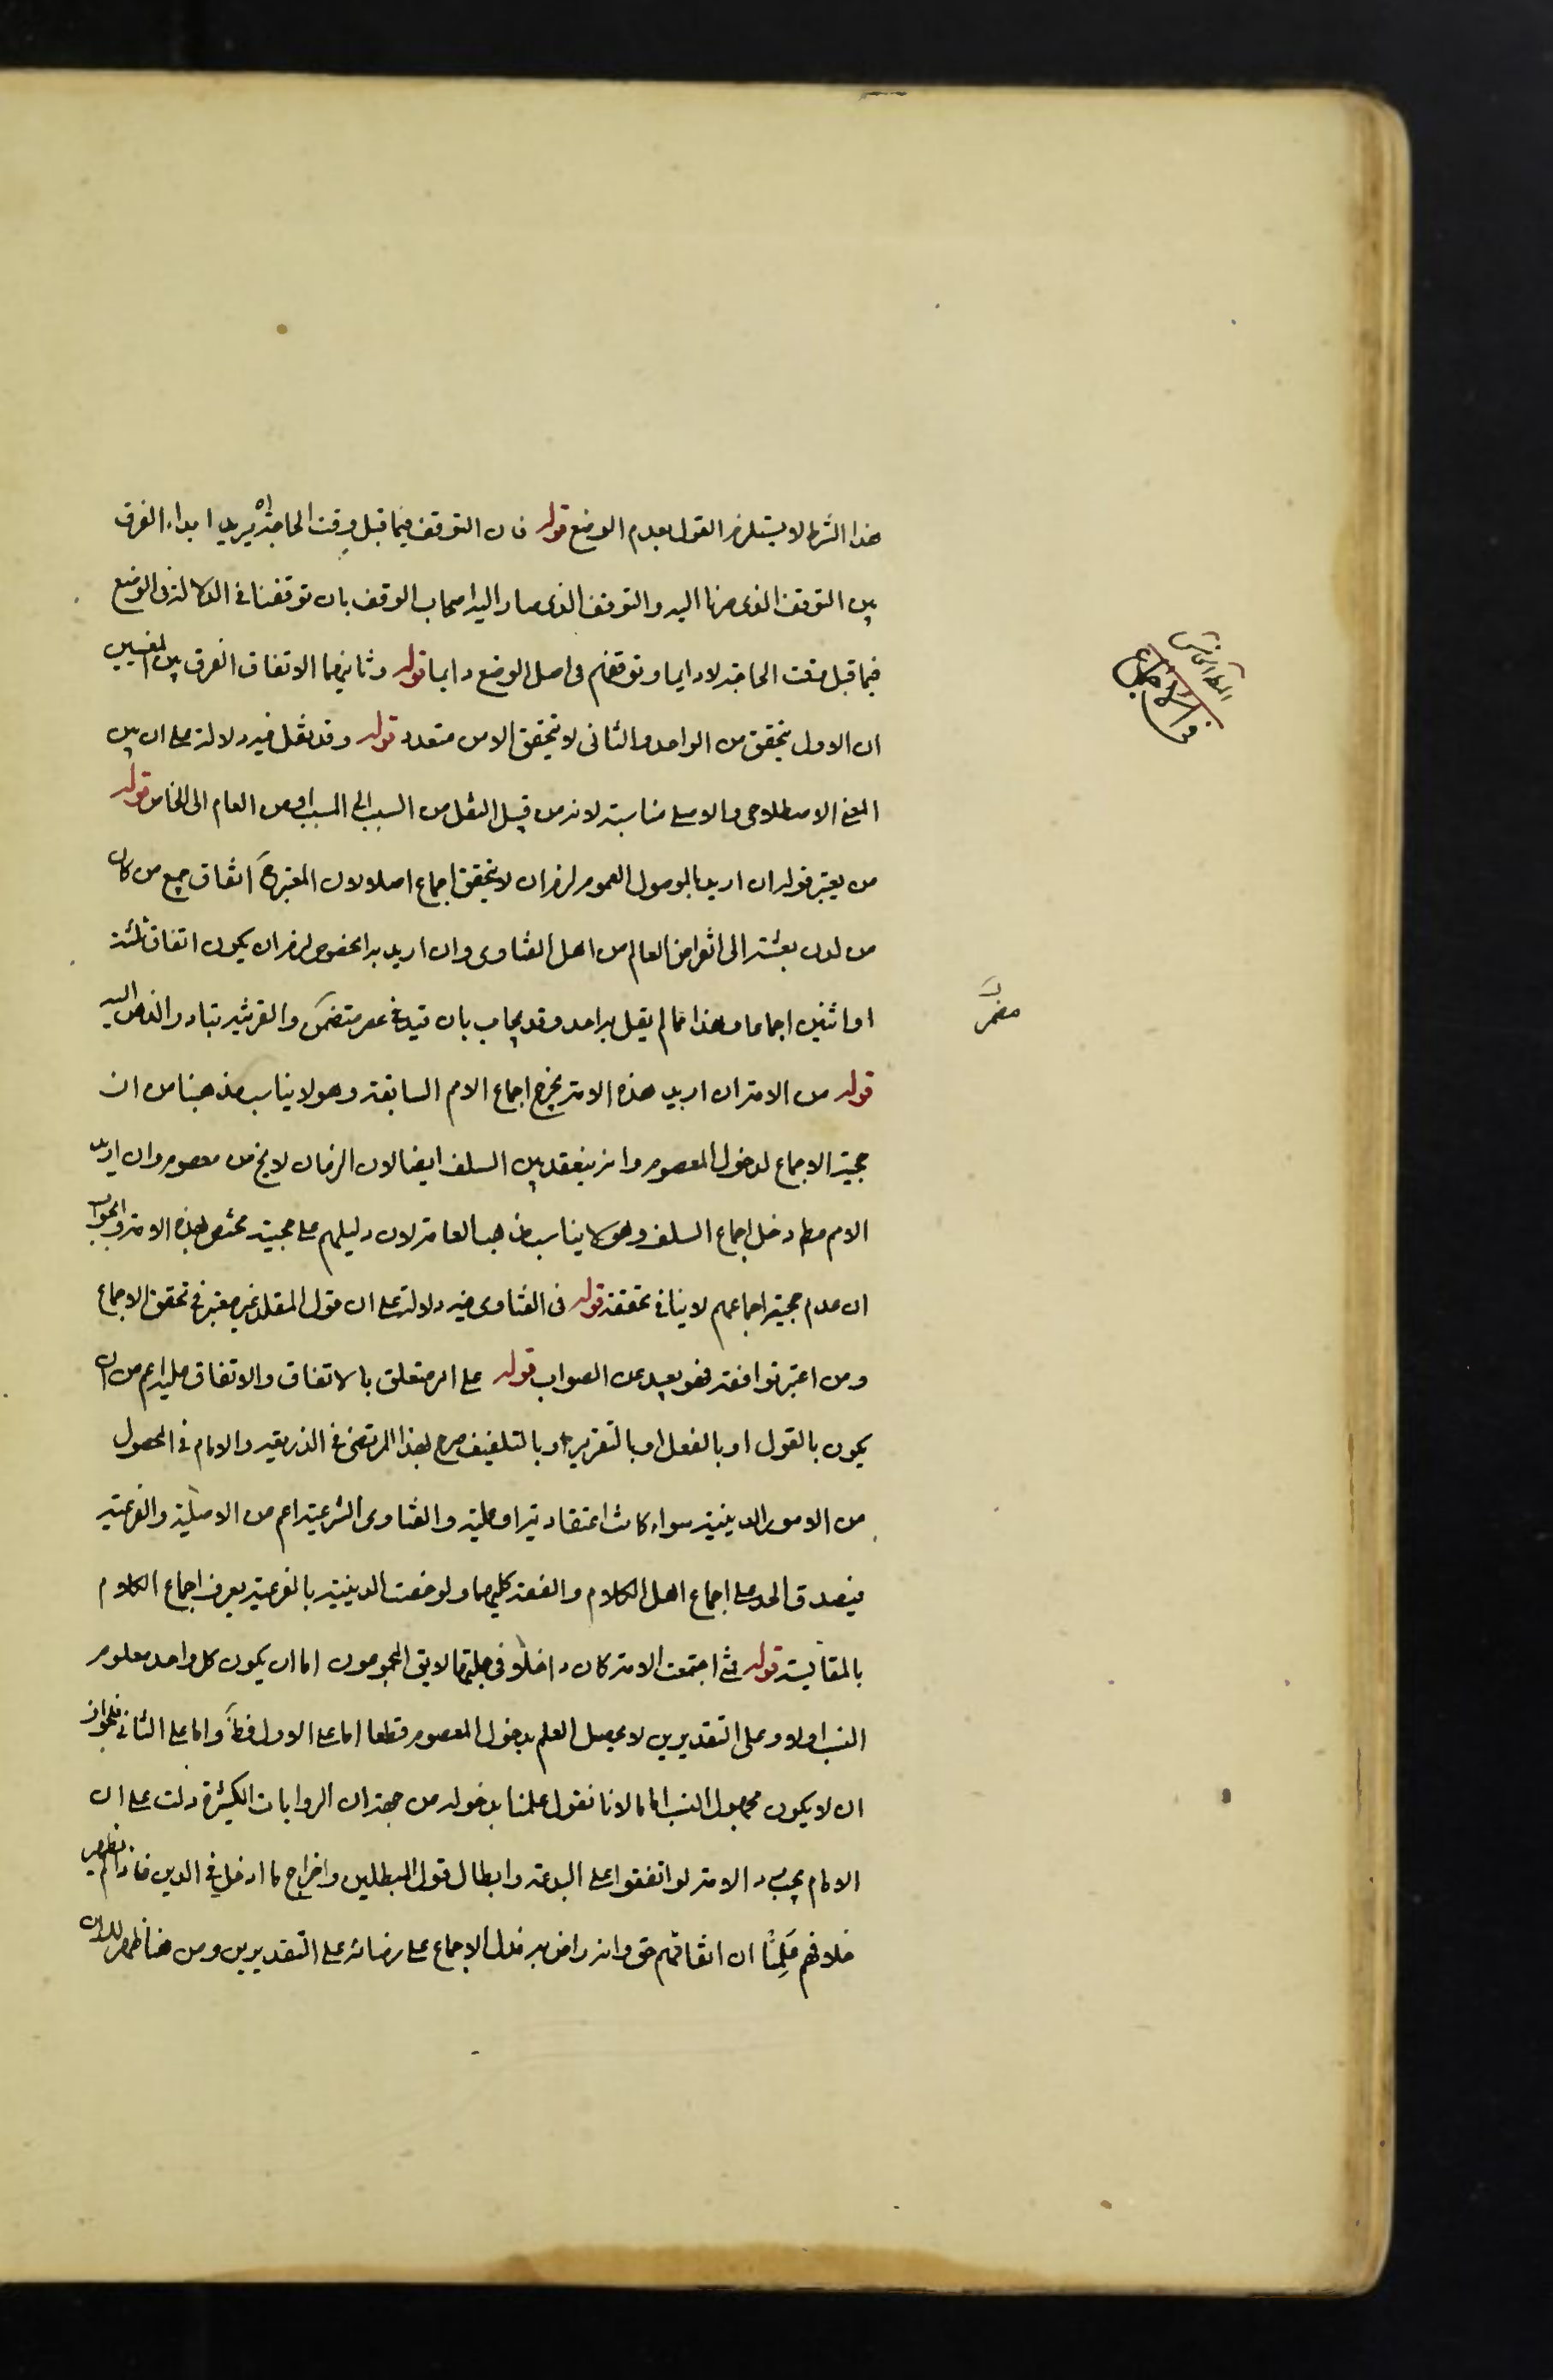 هذا الشرط لا يستلزم القول بعدم الوضع قوله فان التوقف فيما قبل وقت الحاجة اه يريد ابداء الفرق
بين التوقف الذى صرنا اليه والتوقف الذى صار اليه اصحاب الوقف بان توقفنا فى الدلالة فى الوضع
فيما قبل وقت الحاجة لا دايما وتوقفهم فى اصل الوضع دايما قوله وثانيهما الاتفاق الفرق بين المعنيين
ان الاول يتحقق من الواحد والثانى لا يتحقق الا من متعدد قوله وقد نقل فيه دلالة على ان بين
المعنى الاصطلاحى والاصلى مناسبة لانه من قبيل النقل من السبب الى المسبب او من العام الى الخاص قوله
من يعتبر قوله ان اريد بالموصول العموم لزم ان لا يتحقق اجماع اصلا لان المعتبر ح اتفاق جميع من كان
من لدن بعثته الى انقراض العالم من اهل الفتاوى وان اريد به الخصوص لزم ان يكون اتفاق ثلثة
او اثنين اجماعا وهذا مما لم يقل به احد وقد يجاب بان قيد فى عصر متضمن والقرينه تبادر الذهن اليه
قوله من الامة ان اريد هذه الامة يخرج اجماع الامم السابقة وهو لا يناسب مذهبنا من ان
حجية الاجماع لدخول المعصوم وانه ينعقد بين السلف ايضا لان الزمان لا يخ من معصوم وان اريد
الامم مط دخل اجماع السلف وهو لا يناسب مذهب العامة لان دليلهم على حجيته مختص بهذه الامة والجواب
ان عدم حجية اجماعهم لا ينافى تحققه قوله فى الفتاوى فيه دلالة على ان قول المقلد غير معتبر فى تحقق الاجماع
ومن اعتبر توافقه فهو بعيد عن الصواب قوله على امر متعلق بالاتفاق والاتفاق عليه اعم من ان
يكون بالقول او بالفعل او بالتقرير او بالتلفيف صرح بهذا المرتضى فى الذريعة والامام فى المحصول
من الامور الدينية سواء كانت اعتقادية او عملية والفتاوى الشرعية اعم من الاصلية والفرعية
فيصدق الحد على اجماع اهل الكلام والفقه كليهما ولو خصت الدينية بالفرعية يعرف اجماع الكلام
بالمقايسة قوله متى اجتمعت الامة كان داخلا فى جملتها لا يق المجمعون اما ان يكون كل واحد معلوم
النسب اولا وعلى التقديرين لا يحصل العلم بدخول المعصوم قطعا اما على الاول فظ واما على الثانى فلجواز
ان لا يكون مجهول النسب اماما لانا نقول علمنا بدخوله من جهة ان الروايات الكثيرة دلت على ان
الامام يجب رد الامة لو اتفقوا على البدعة وابطال قول المبطلين واخراج ما ادخل فى الدين فاذا لم يظهر
خلافهم علمنا ان اتفاقهم حق وانه راض به فدل الاجماع على رضائه على التقديرين ومن هنا ظهر لك ان
فى الاجماع